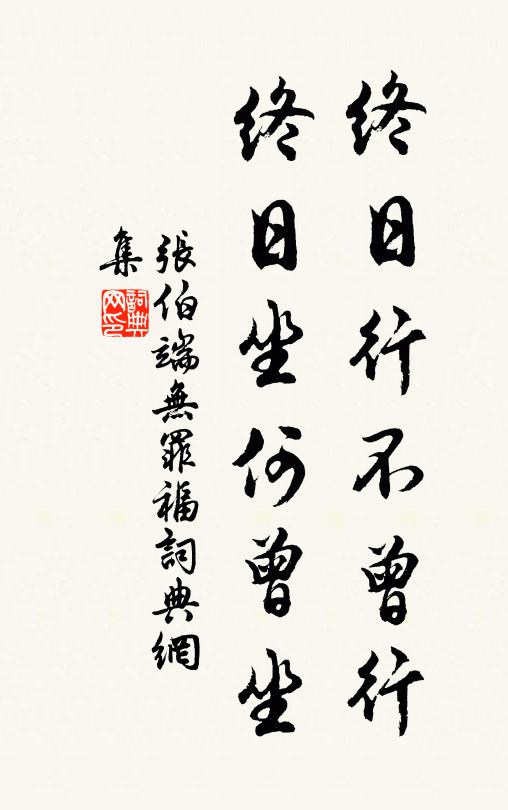 終日行不曾行
終日坐何曾坐
張伯端無罪福詞典網
集
詞典
网印